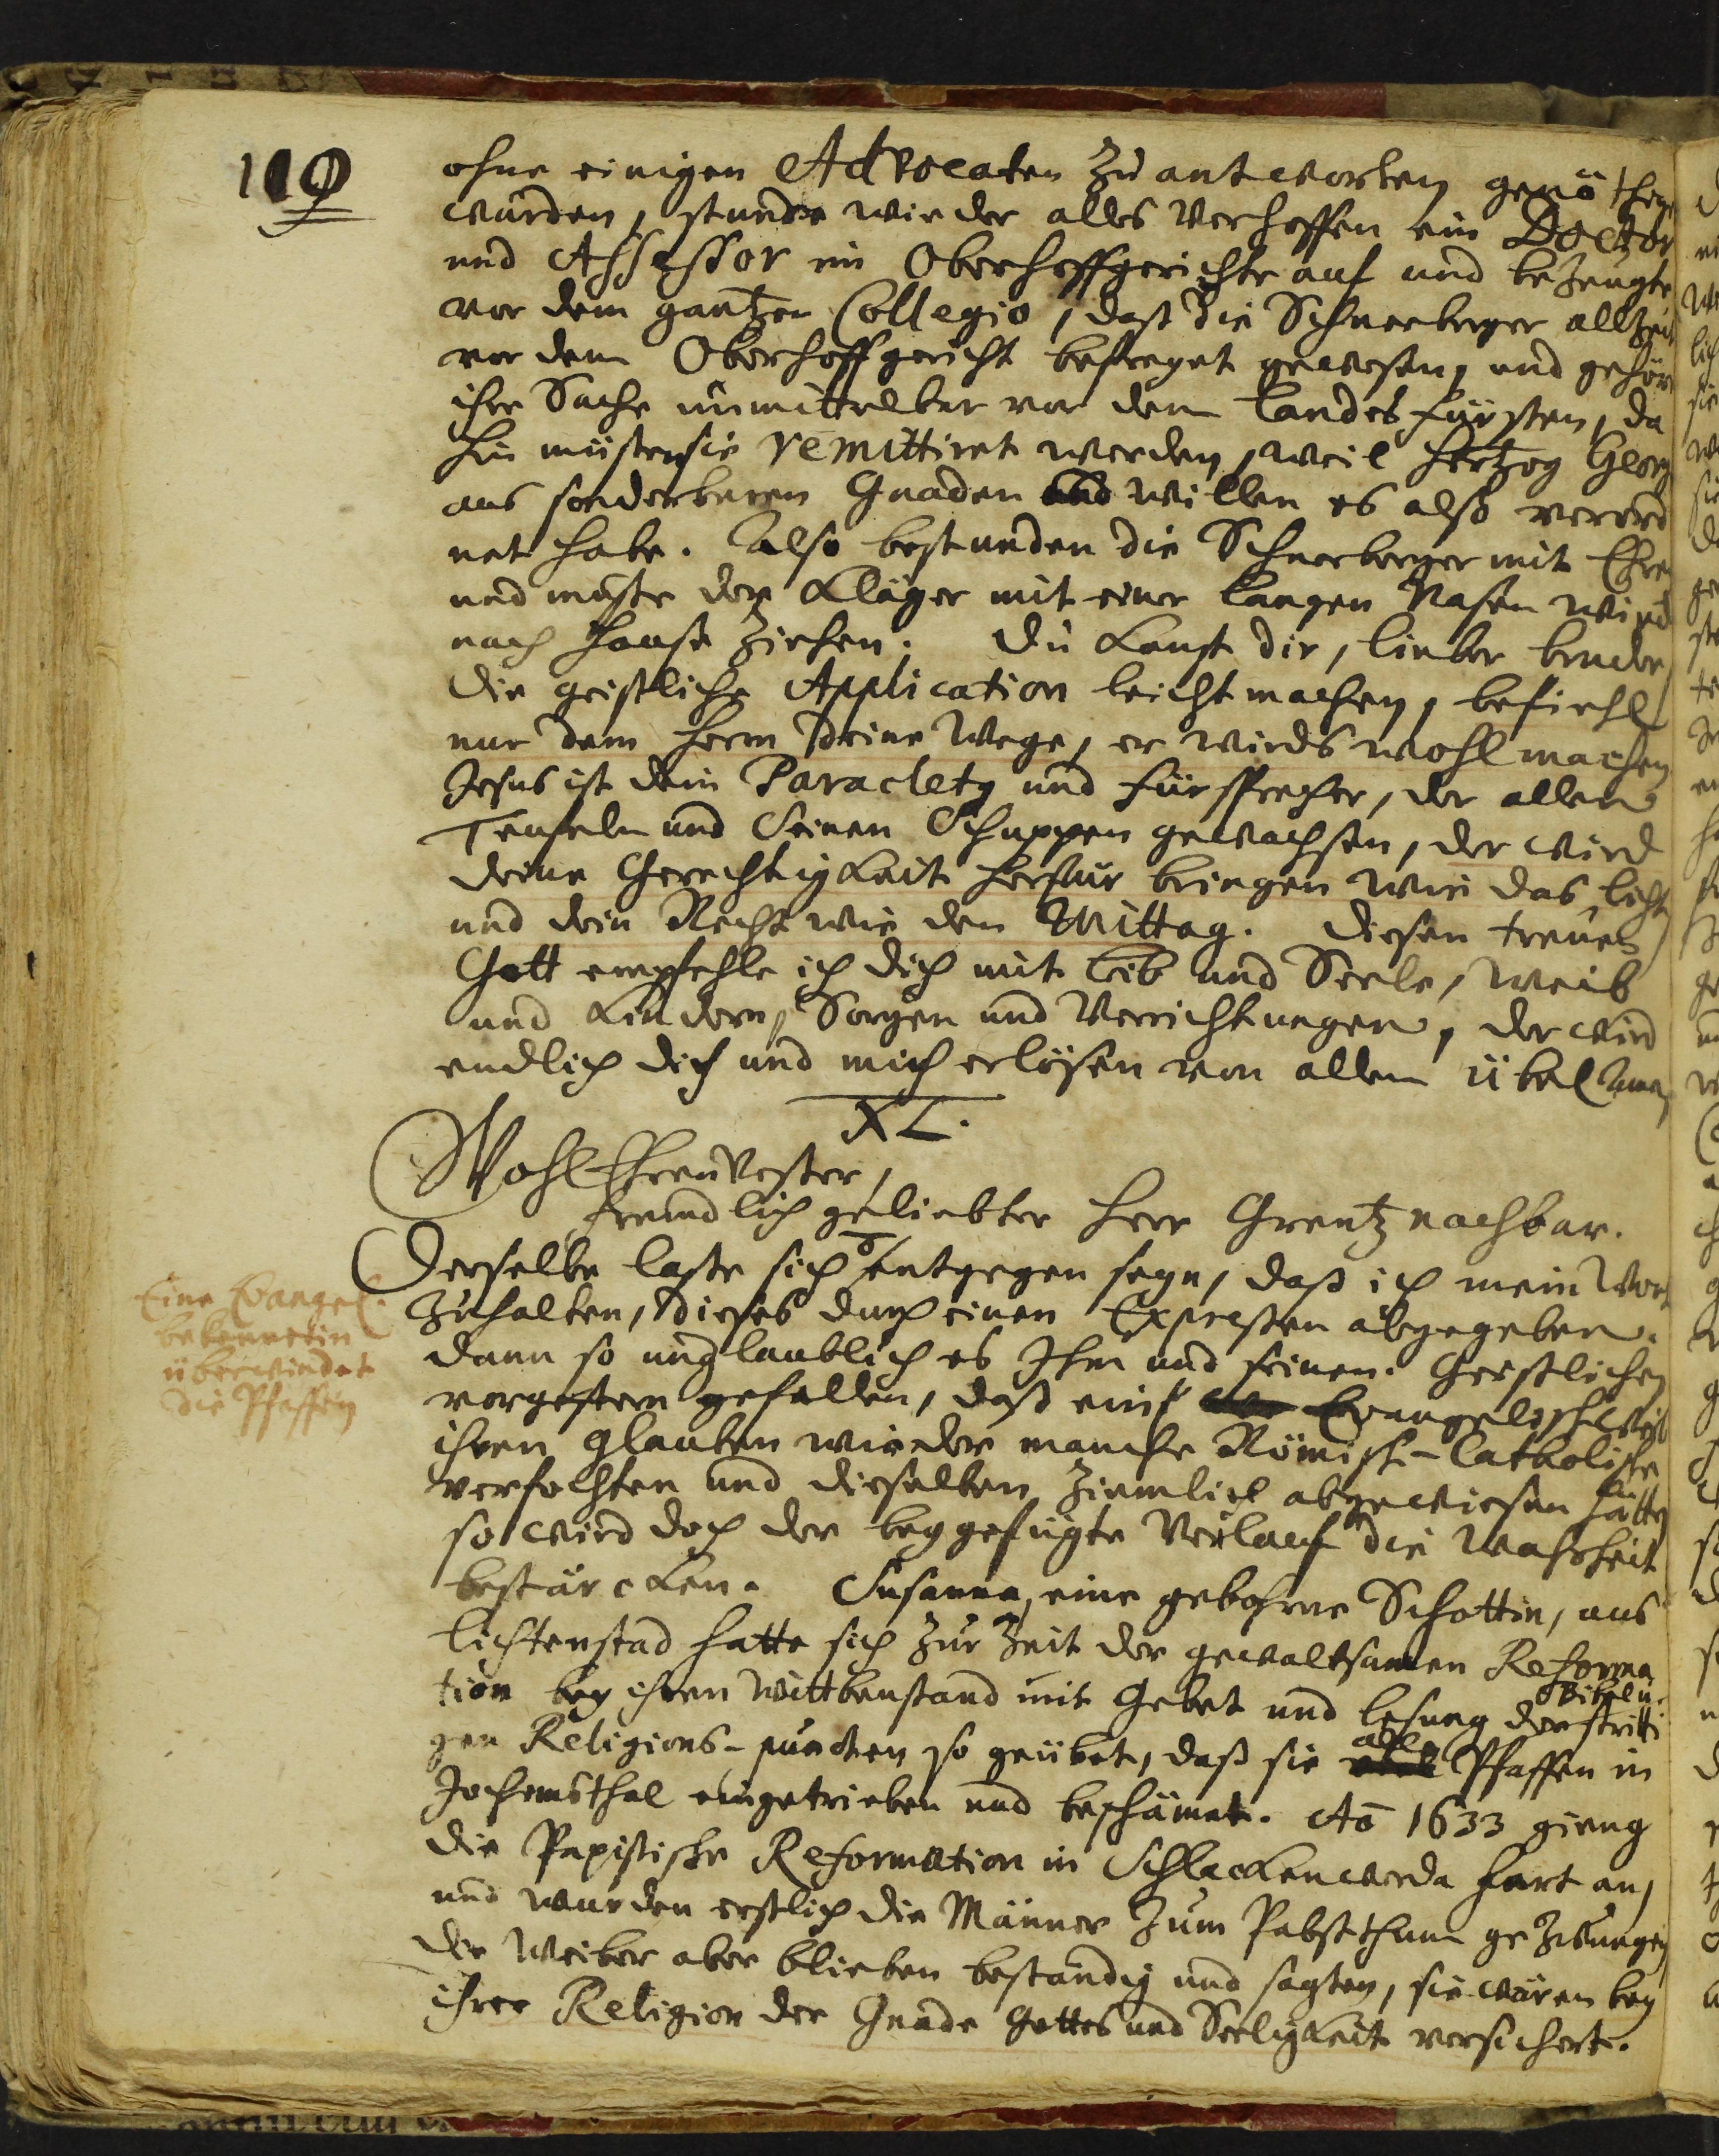 110
ohne einigen Advocaten zu antworten genöthen
würden, stunde wieder alles Verhoffen ein Doctor
und Assessor im Oberhoffgerichte auf und bezeugte
vor dem gantzen Collegio, daß die Schneeberger allzeit
vor dem Oberhoffgericht befreyet gewesen, und gehör
ihre Sache unmittelbar vor dem Landes Fürsten, da
hin müsten sie remittiret werden, weil Hertzog Georg
aus sonderbaren Gnaden und willen es alß verord
net habe. Also bestunden die Schneeberger mit Ehren
und muste der Kläger mit einer langen Nasen wied
nach Hause ziehen. Du kanst dir, lieber bruder,
die geistliche Application leicht machen, befiehl
nur dem Herrn deine Wege, er wirds wohl machen
Jesus ist dein Paracletg und Fürsprecher, der allen
Teufeln und Seinen Schuppen gewachsen, der wird
deine Gerechtigkeit herfür bringen wie das licht
und dein Recht wie den Mittag. Diesen treuen
Gott empfehle ich dich mit leib und Seele, weib
und Kindern, Sorgen und Verrichtungen, der wird
endlich dich und mich erlösen von allem übel Amen
XL.
WohlEhrenVester,
freundlich geliebter Herr Grentznachbar.
Derselbe laste sich entgegen seyn, daß ich mein Wort
zuhalten, dieses durch einen Expressen abgegeben.
Eine Evangel.
bekennerin
überwindet
die Pfaffen
dann so unglaublich es Ihm und seinen Geistlichen
vorgestern gefallen, daß eine Evangelische Weib
ihren Glauben wieder manche Römisch-Catholische
verfochten und dieselben ziemlich abgewiesen hätte
so wird doch der beygefügte Verlauf die Wahrheit
bestärcken. Susanna, eine gebohrne Schottin, aus
Lichtenstad hatte sich zur Zeit der gewaltsamen Reforma
tion bey ihren Wittbenstand mit Gebet und lesung der Bibel u. stritti
gen Religions-puncten so geübet, daß sie alle Pfaffen in
Jochemsthal eingetrieben und beschämet. Aō 1633 gieng
die Papistische Reformation in Schlackenwerda hart an,
und wurden erstlich die Männer zum Pabstthum gezwungen
die Weiber aber blieben bestandig und sagten, sie wären bey
ihrer Religion der Gnade Gottes und Seeligkeit versichert.